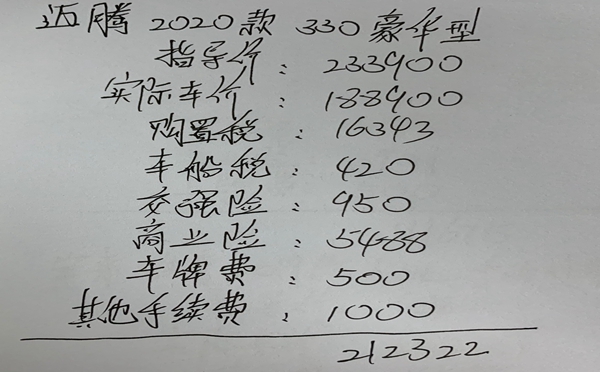 迈腾 2020款 330豪华型
指导价：233900
实际车价：188900
购置税：16343
车船税：420
交强险：950
商业险：5488
车牌费：500
其他手续费：1000
212322